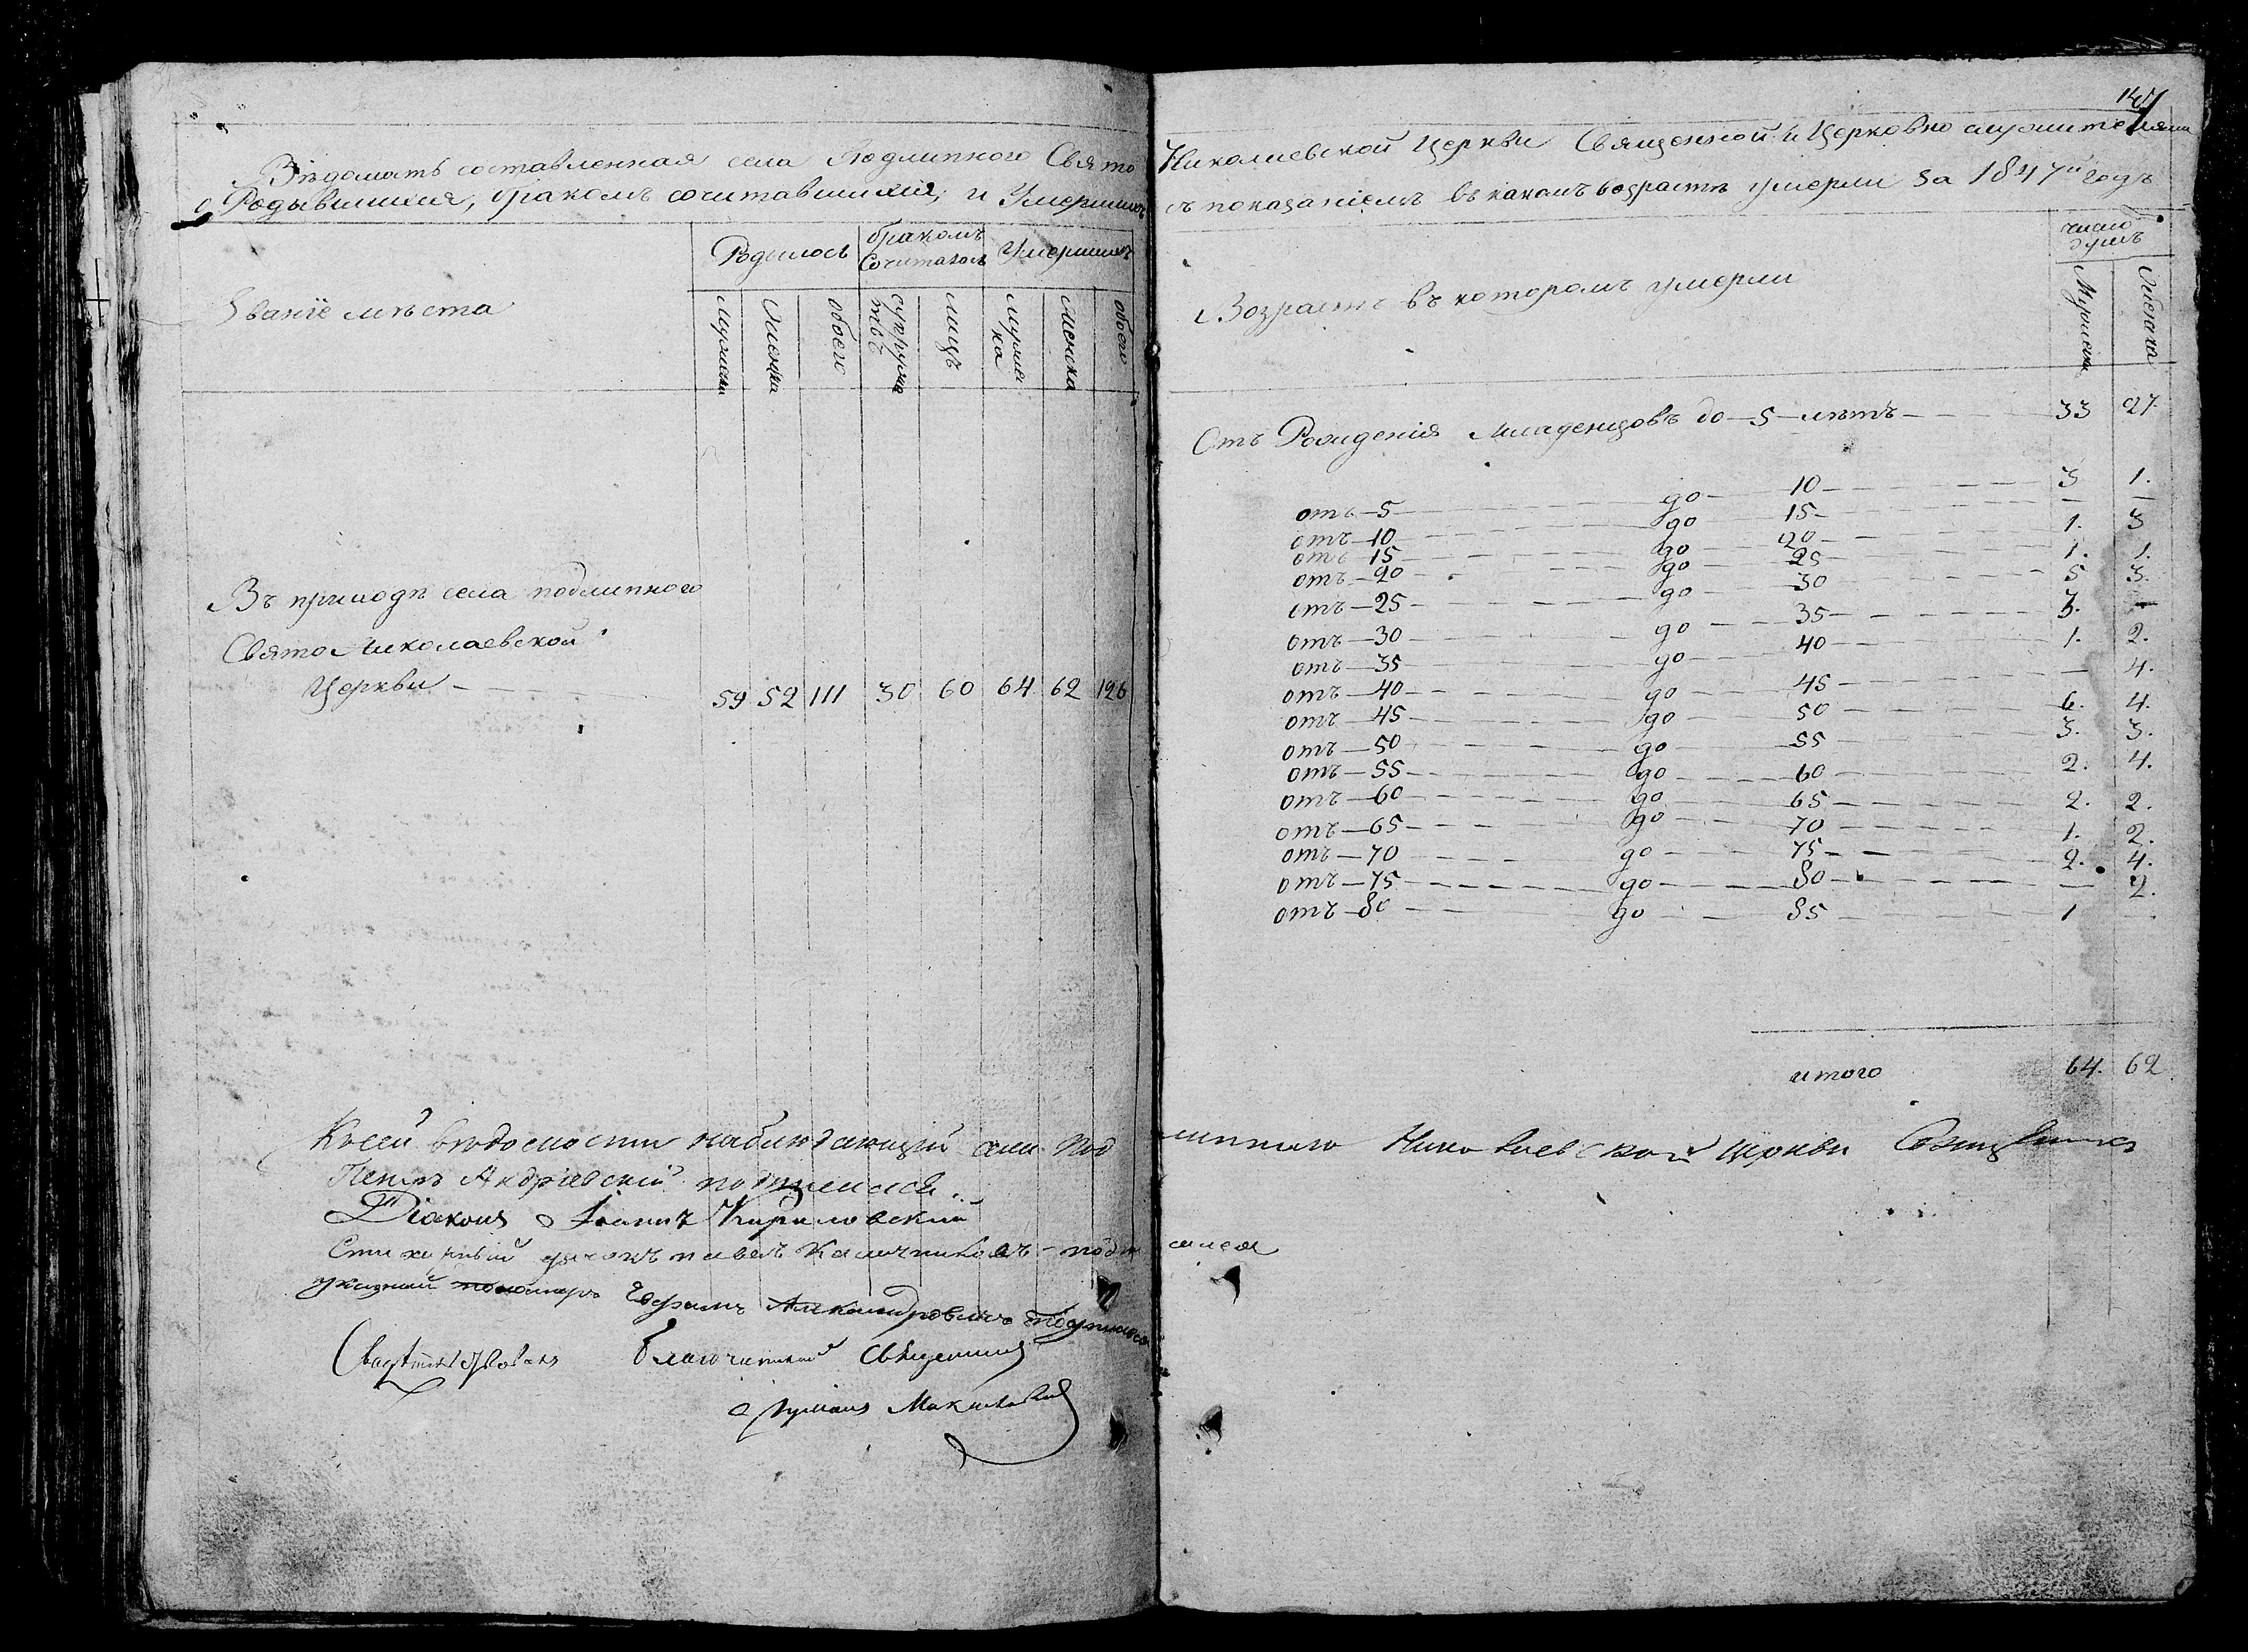 147
Вѣдомость составленная села Подлипного Свято Николаевской Церкви Священной и Церковно служителями
о Родывшихся, бракомъ сочитавшихся, и Умершихъ съ показаніемъ въ какомъ возрастѣ умерли за 1847й годъ
Званіе мѣста
Родилось
бракомъ Сочиталось
Умершихъ
Мужеска
Женска
обоего
супружествъ
лицъ
мужеска
женска
обоего
Въ приходѣ села подлипного
Свято Николаевской
Церкви 59 52 111 30 60 64 62 126
Возрастъ въ которомъ умерли
число душъ
Мужеска
Женска
Отъ Рожденія Младенцовъ до 5 лѣтъ 33 27.
отъ 5 до 10 3 1.
отъ 10 до 15 — —
отъ 15 до 20 1. 3
отъ 20 до 25 1. 1.
отъ 25 до 30 5 3.
отъ 30 до 35 3. —
отъ 35 до 40 1. 2.
отъ 40 до 45 — 4.
отъ 45 до 50 6. 4.
отъ 50 до 55 3. 3.
отъ 55 до 60 2. 4.
отъ 60 до 65 2. 2.
отъ 65 до 70 1. 2.
отъ 70 до 75 2. 4.
отъ 75 до 80 — 2.
отъ 80 до 85 1
итого 64. 62
Ксей села Подлипного Николаевской церкви Священникъ
Петръ Андріевскій подписался.
Діаконъ Іоаннъ Кириловский
Стихарный Павелъ подписался
указной пономаръ Александровичъ подписался
Благочинный Священникъ